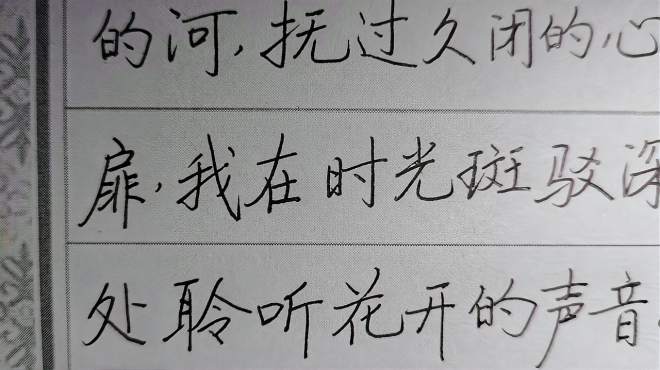 的河,抚过久闭的心
扉,我在时光斑驳深
处聆听花开的声音.